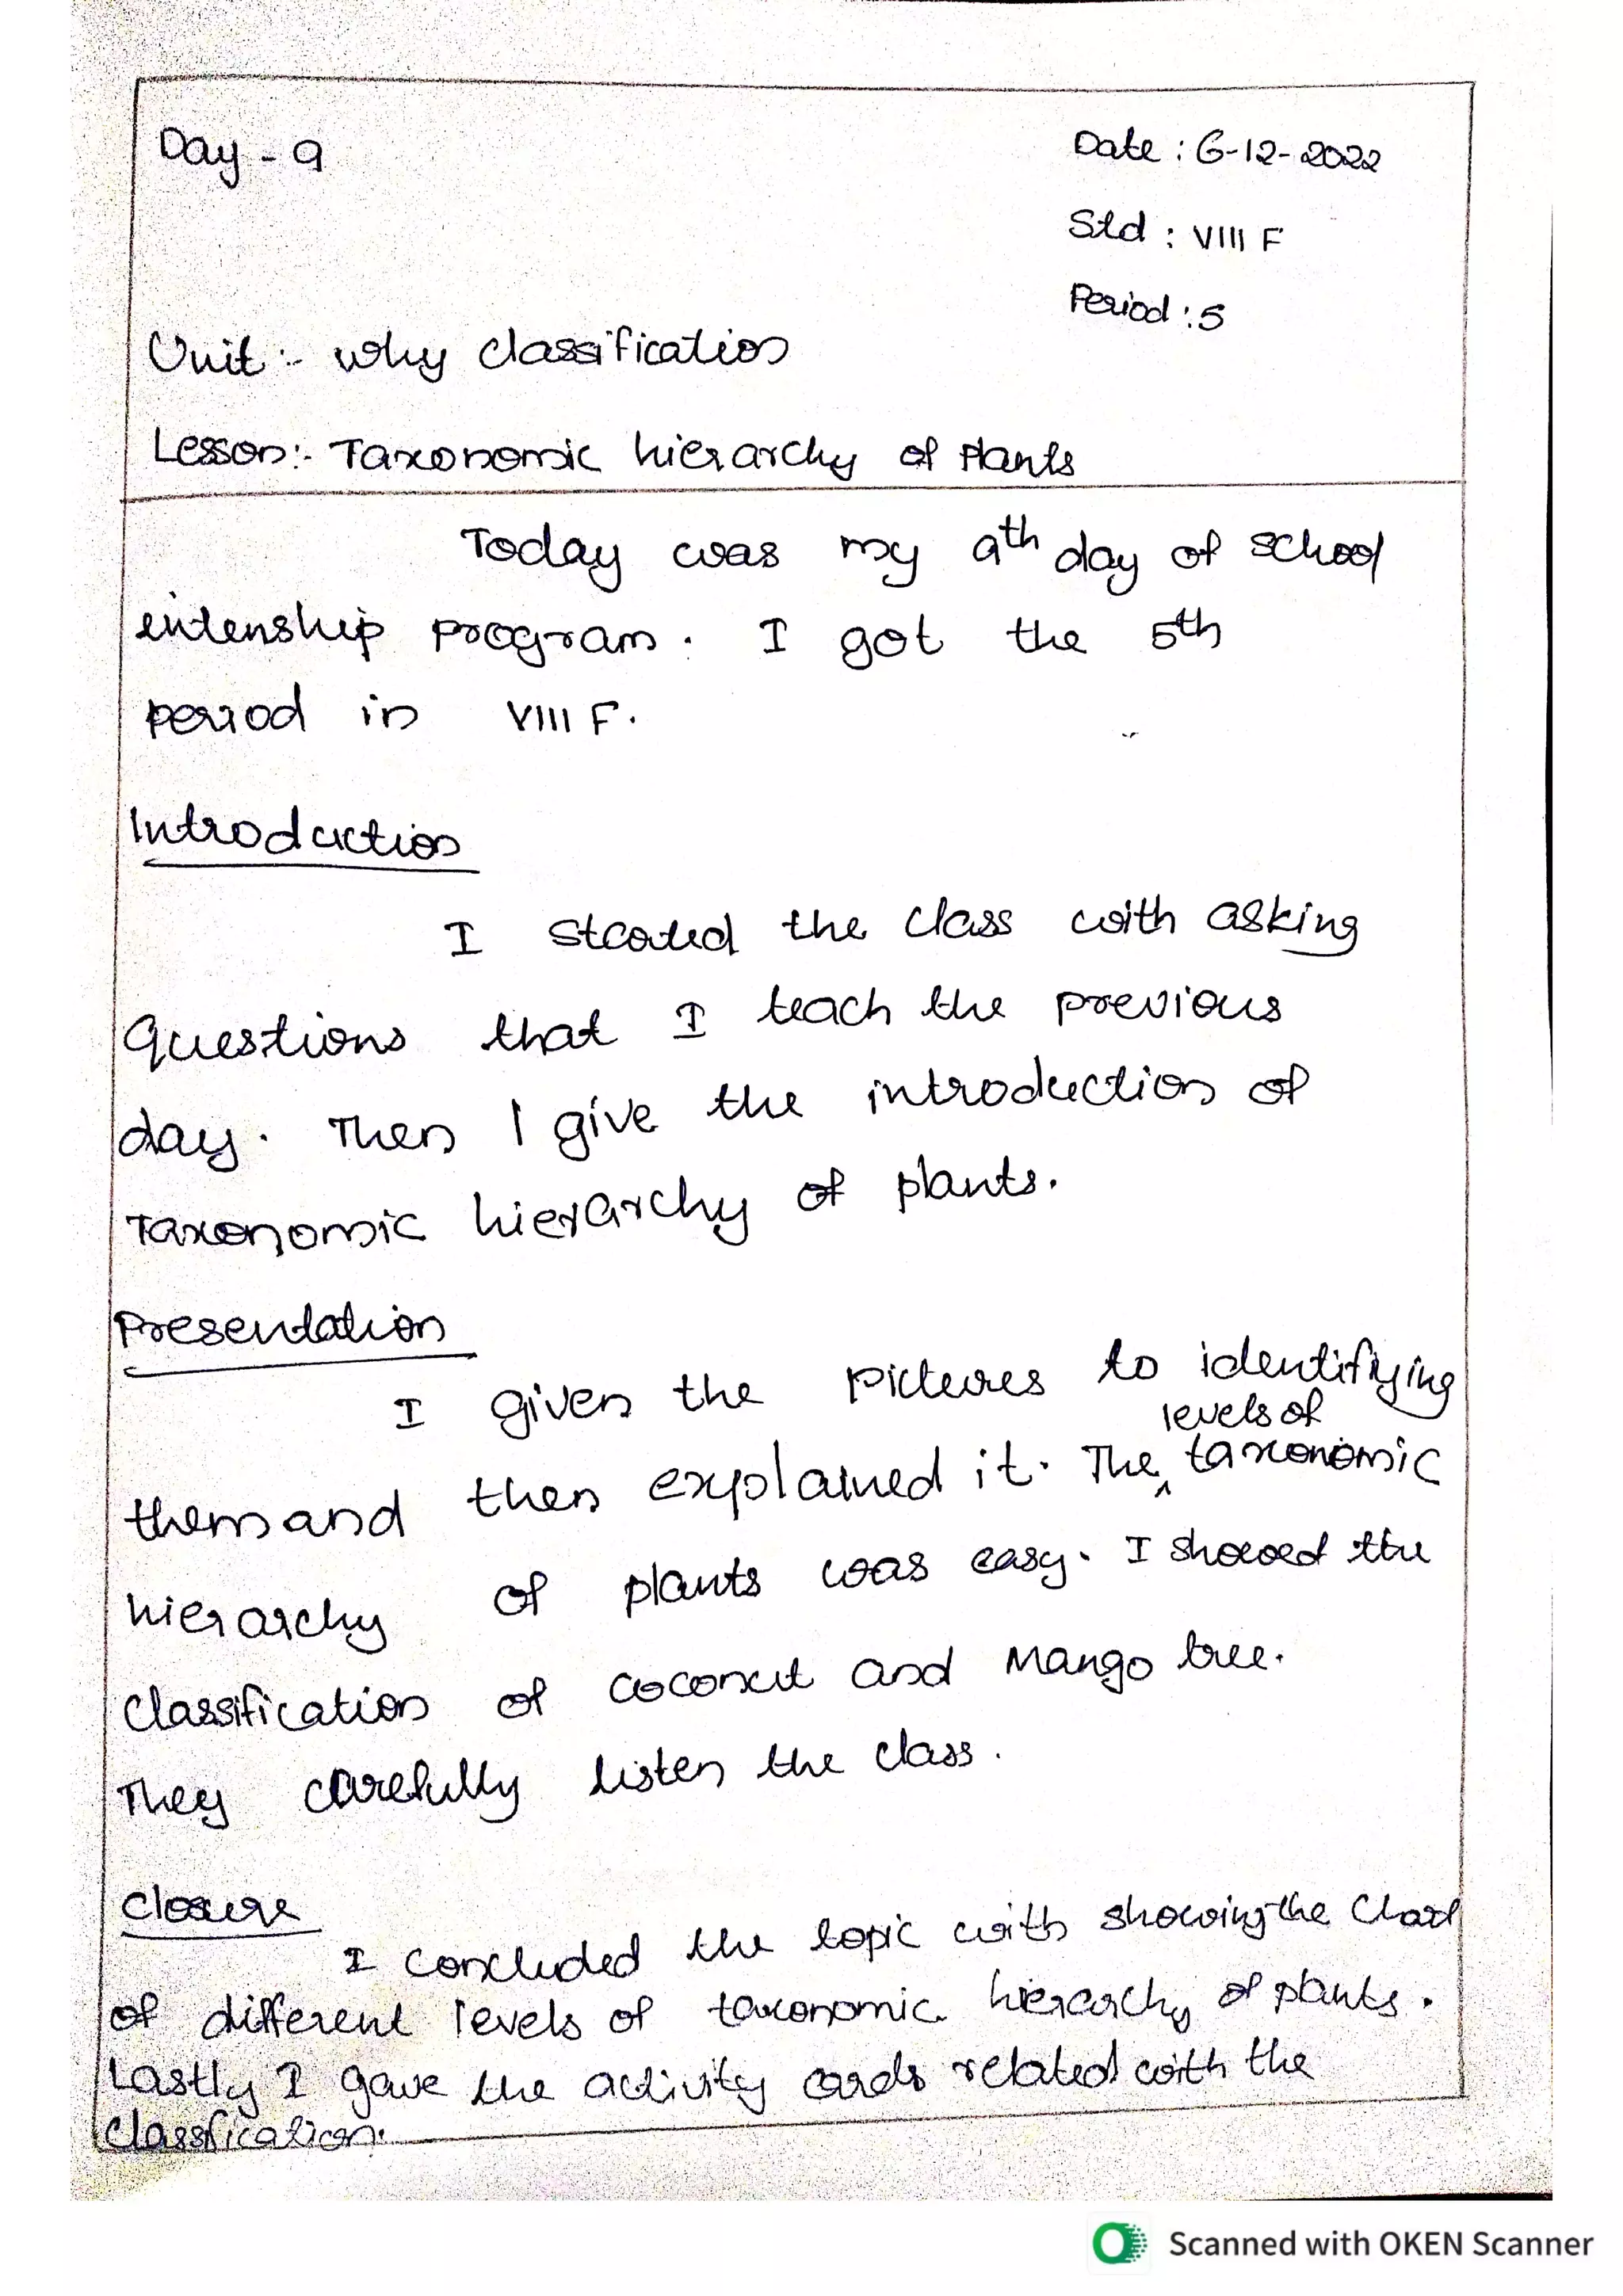 Day - 9
Date : 6-12-2022
Std : VIII F
Period : 5
Unit :- why classification
Lesson:- Taxonomic hierarchy of Plants
Today was my 9th day of school
intenship program. I got the 5th
period in VIII F.
Introduction
I started the class with asking
questions that I teach the previous
day. Then I give the introduction of
Taxonomic hierarchy of plants.
Presentation
I given the pictures to identifiying
levels of
them and then explained it. The ^ taxonomic
hierarchy of plants was easy. I showed the
classification of coconut and Mango tree.
They carefully listen the class.
Closure
I concluded the topic with showing the Chart
of different levels of taxonomic hierarchy of plants.
Lastly I gave the activity cards related with the
classification.
Scanned with OKEN Scanner